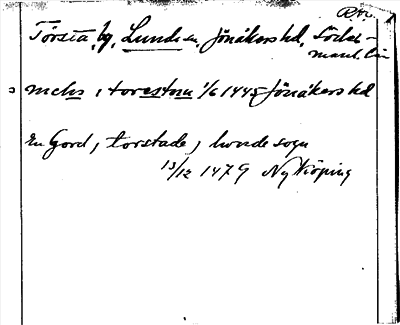 Torsta, by, Lunda sn, Jönåkers hd, Söderman. län
mchs i torestom 1/6 1445 Jönåkers hd
En Gord, torstade, lunde sogn
13/12 1479 Nyköping